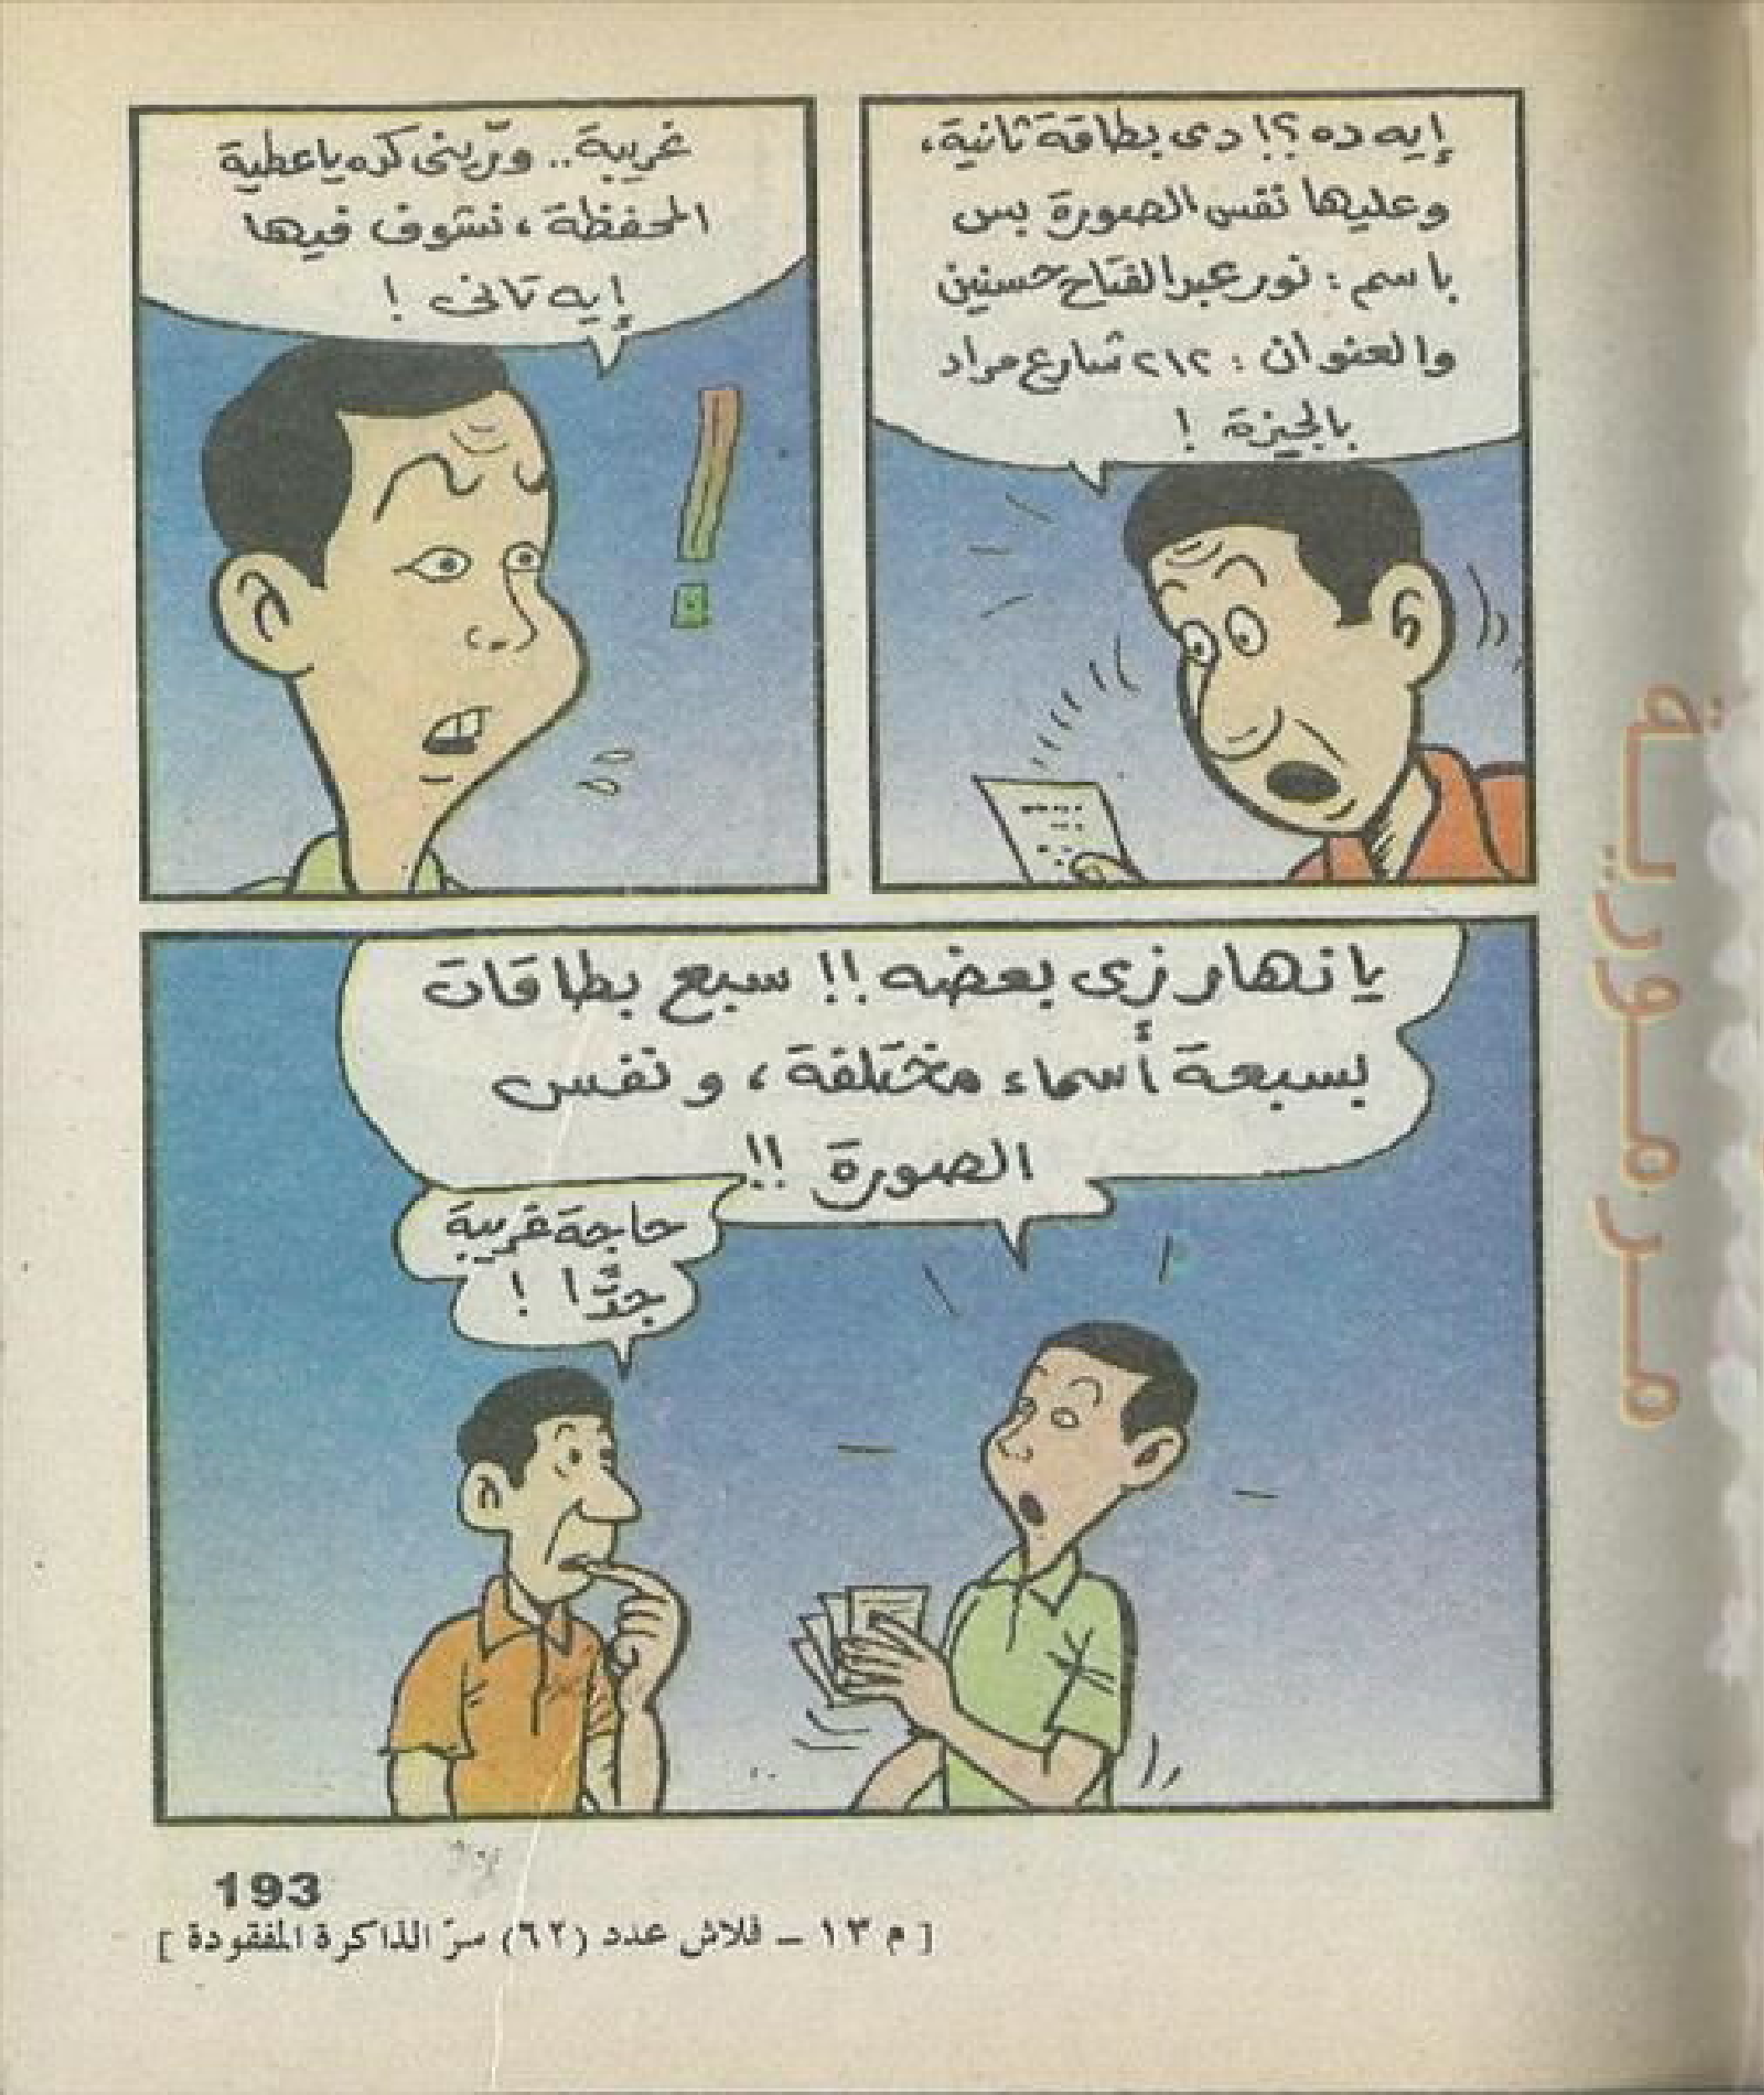 إيه ده ؟! دى بطاقة ثانية،
وعليها نفس الصورة بس
باسم : نور عبد الفتاح حسنين
والعنوان : ٢١٢ شارع مراد
بالجيزة !
غريبة .. ورّينى كده يا عطية
المحفظة ، نشوف فيها
إيه تانى !
يا نهار زى بعضه !! سبع بطاقات
بسبعة أسماء مختلفة ، ونفس
الصورة !!
حاجة غريبة
جدًّا !
193
[ م ١٣ – فلاش عدد (٦٢) سرّ الذاكرة المفقودة ]
مرمورية